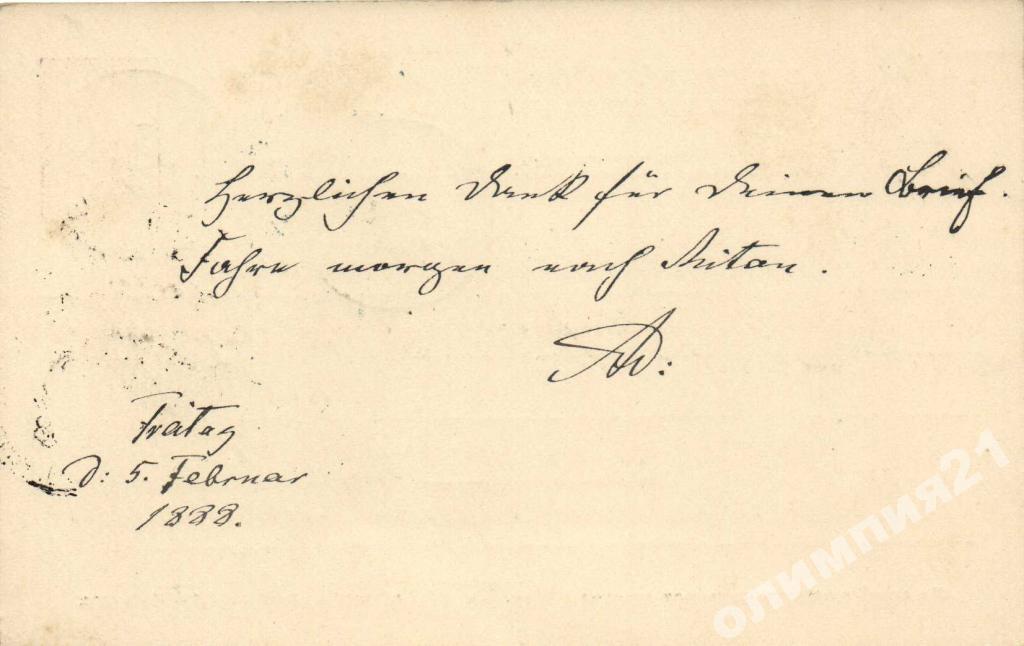 Herzlichen Dank für Deinen Brief.
Fahre morgen nach Mitau.
AD:
Freitag
D: 5. Februar
1888.
олимпия21